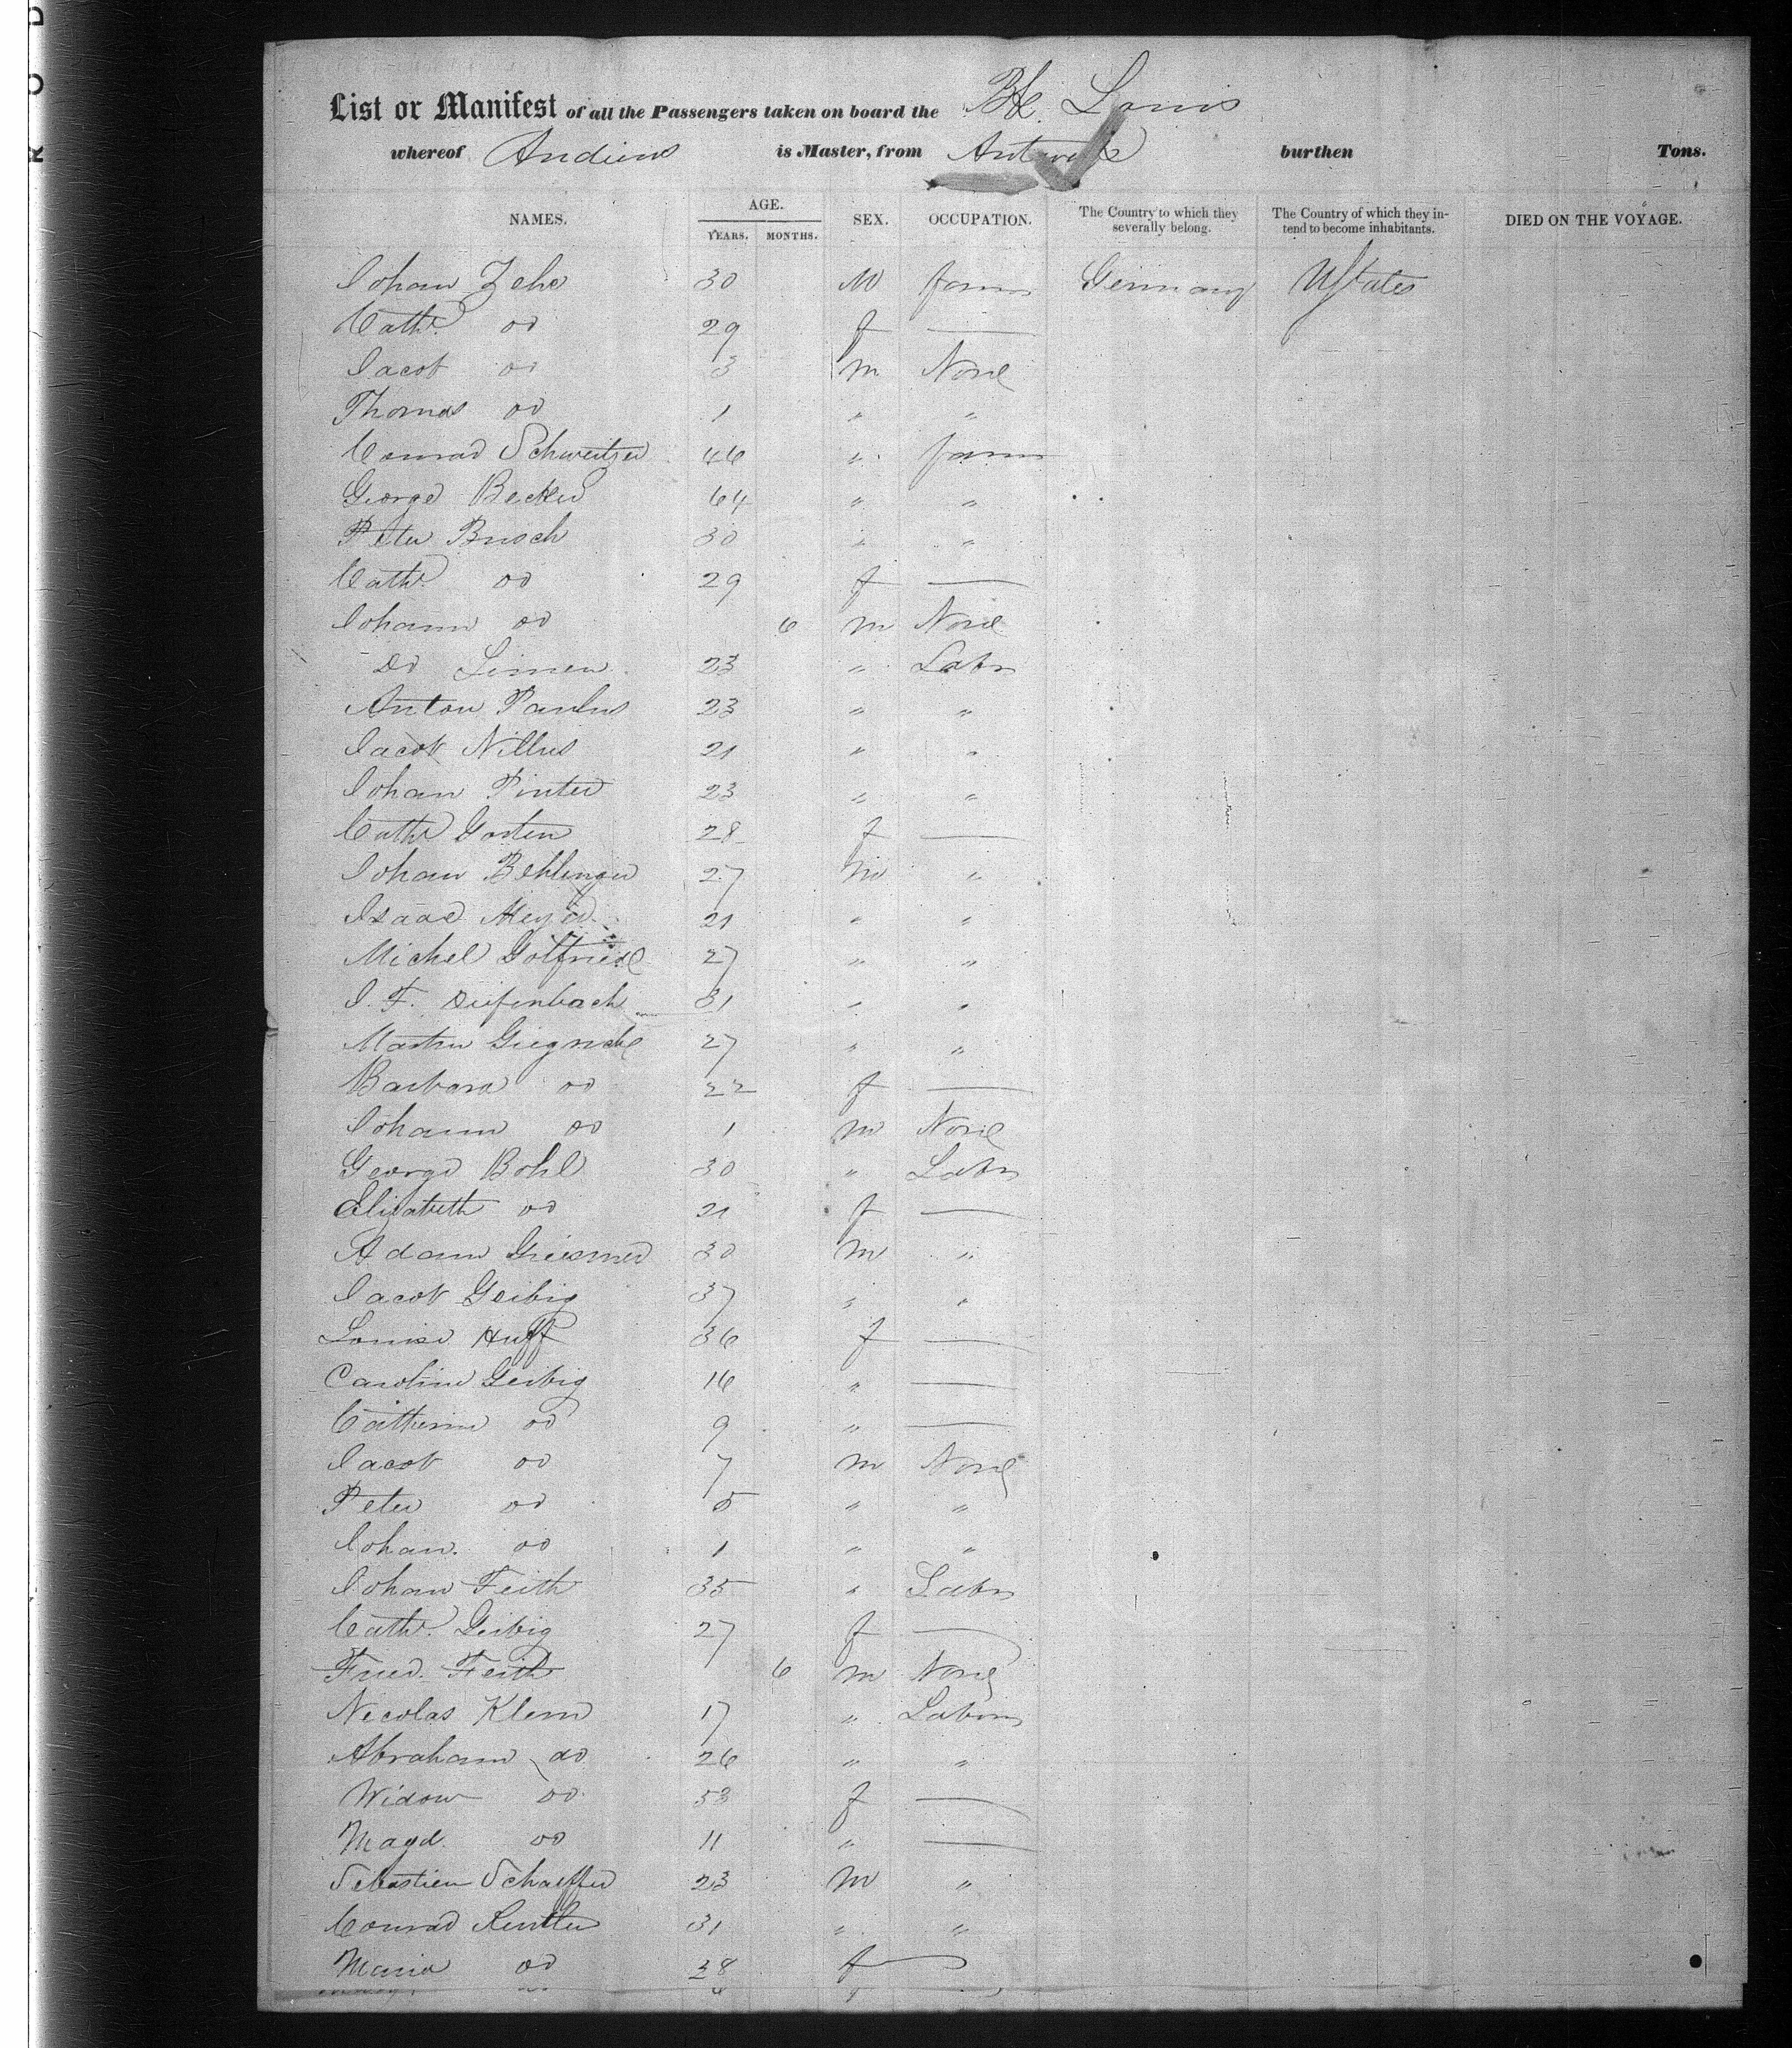 List or Manifest of all the Passengers taken on board the Bk. Louis
whereof Andiens is Master, from Antwerp burthen Tons.
NAMES. AGE. YEARS. MONTHS. SEX. OCCUPATION. The Country to which they severally belong. The Country of which they intend to become inhabitants. DIED ON THE VOYAGE.
Johan Zehe 30 M farmr Germany UStates
Cathe do 29 f —
Jacob do 3 m None
Thomas do 1 " "
Conrad Schweitzer 46 " farmr
George Becker 64 " "
Peter Busch 30 " "
Cathe do 29 f —
Johann do 6 m None
Do Simen 23 " Labr
Anton Paulus 23 " "
Jacob Nillus 21 " "
Johan Pinter 23 " "
Cathe Gorten 28 f —
Johan Behlinger 27 m "
Isaac Meyer 21 " "
Michel Gottfried 27 " "
J. F. Diefenbach 31 " "
Martin 27 " "
Barbara do 22 f —
Johann do 1 m None
George Bohl 30 " Labr
Elizabeth do 21 f —
Adam Griesmer 30 m "
Jacob Geibig 37 " "
Louise Huff 36 f —
Caroline Geibig 16 " —
Catherine do 9 " —
Jacob do 7 m None
Peter do 5 " "
Johan do 1 " "
Johan Feith 35 " Labr
Cathe. Geibig 27 f —
Fried. Feith 6 m None
Nicolas Klein 17 " Labour
Abraham do 26 " "
Widow do 53 f —
Magd. do 11 " —
Sebastien Schaeffer 23 m "
Conrad 31 " "
Maria do 28 f —